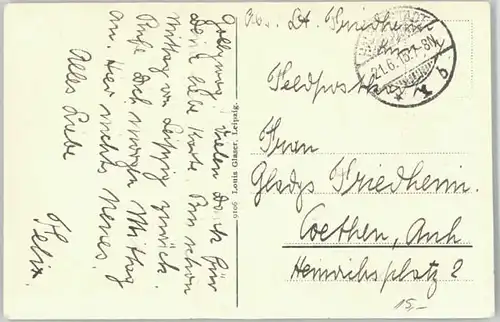 Abs. Lt. Friedheim
Feldpostk
21.6.15.7-8N.
* b
Frau
Gladys Friedheim.
Coethen, Anh
Heinrichsplatz 2
15,-
9106 Louis Glaser, Leipzig.
Vielen Dank für
Deine liebe Karte. Bin schon
Mittag von Leipzig zurück.
Rufe Dich morgen Mittag
an. Hier nichts Neues.
Alles Liebe
Felix.